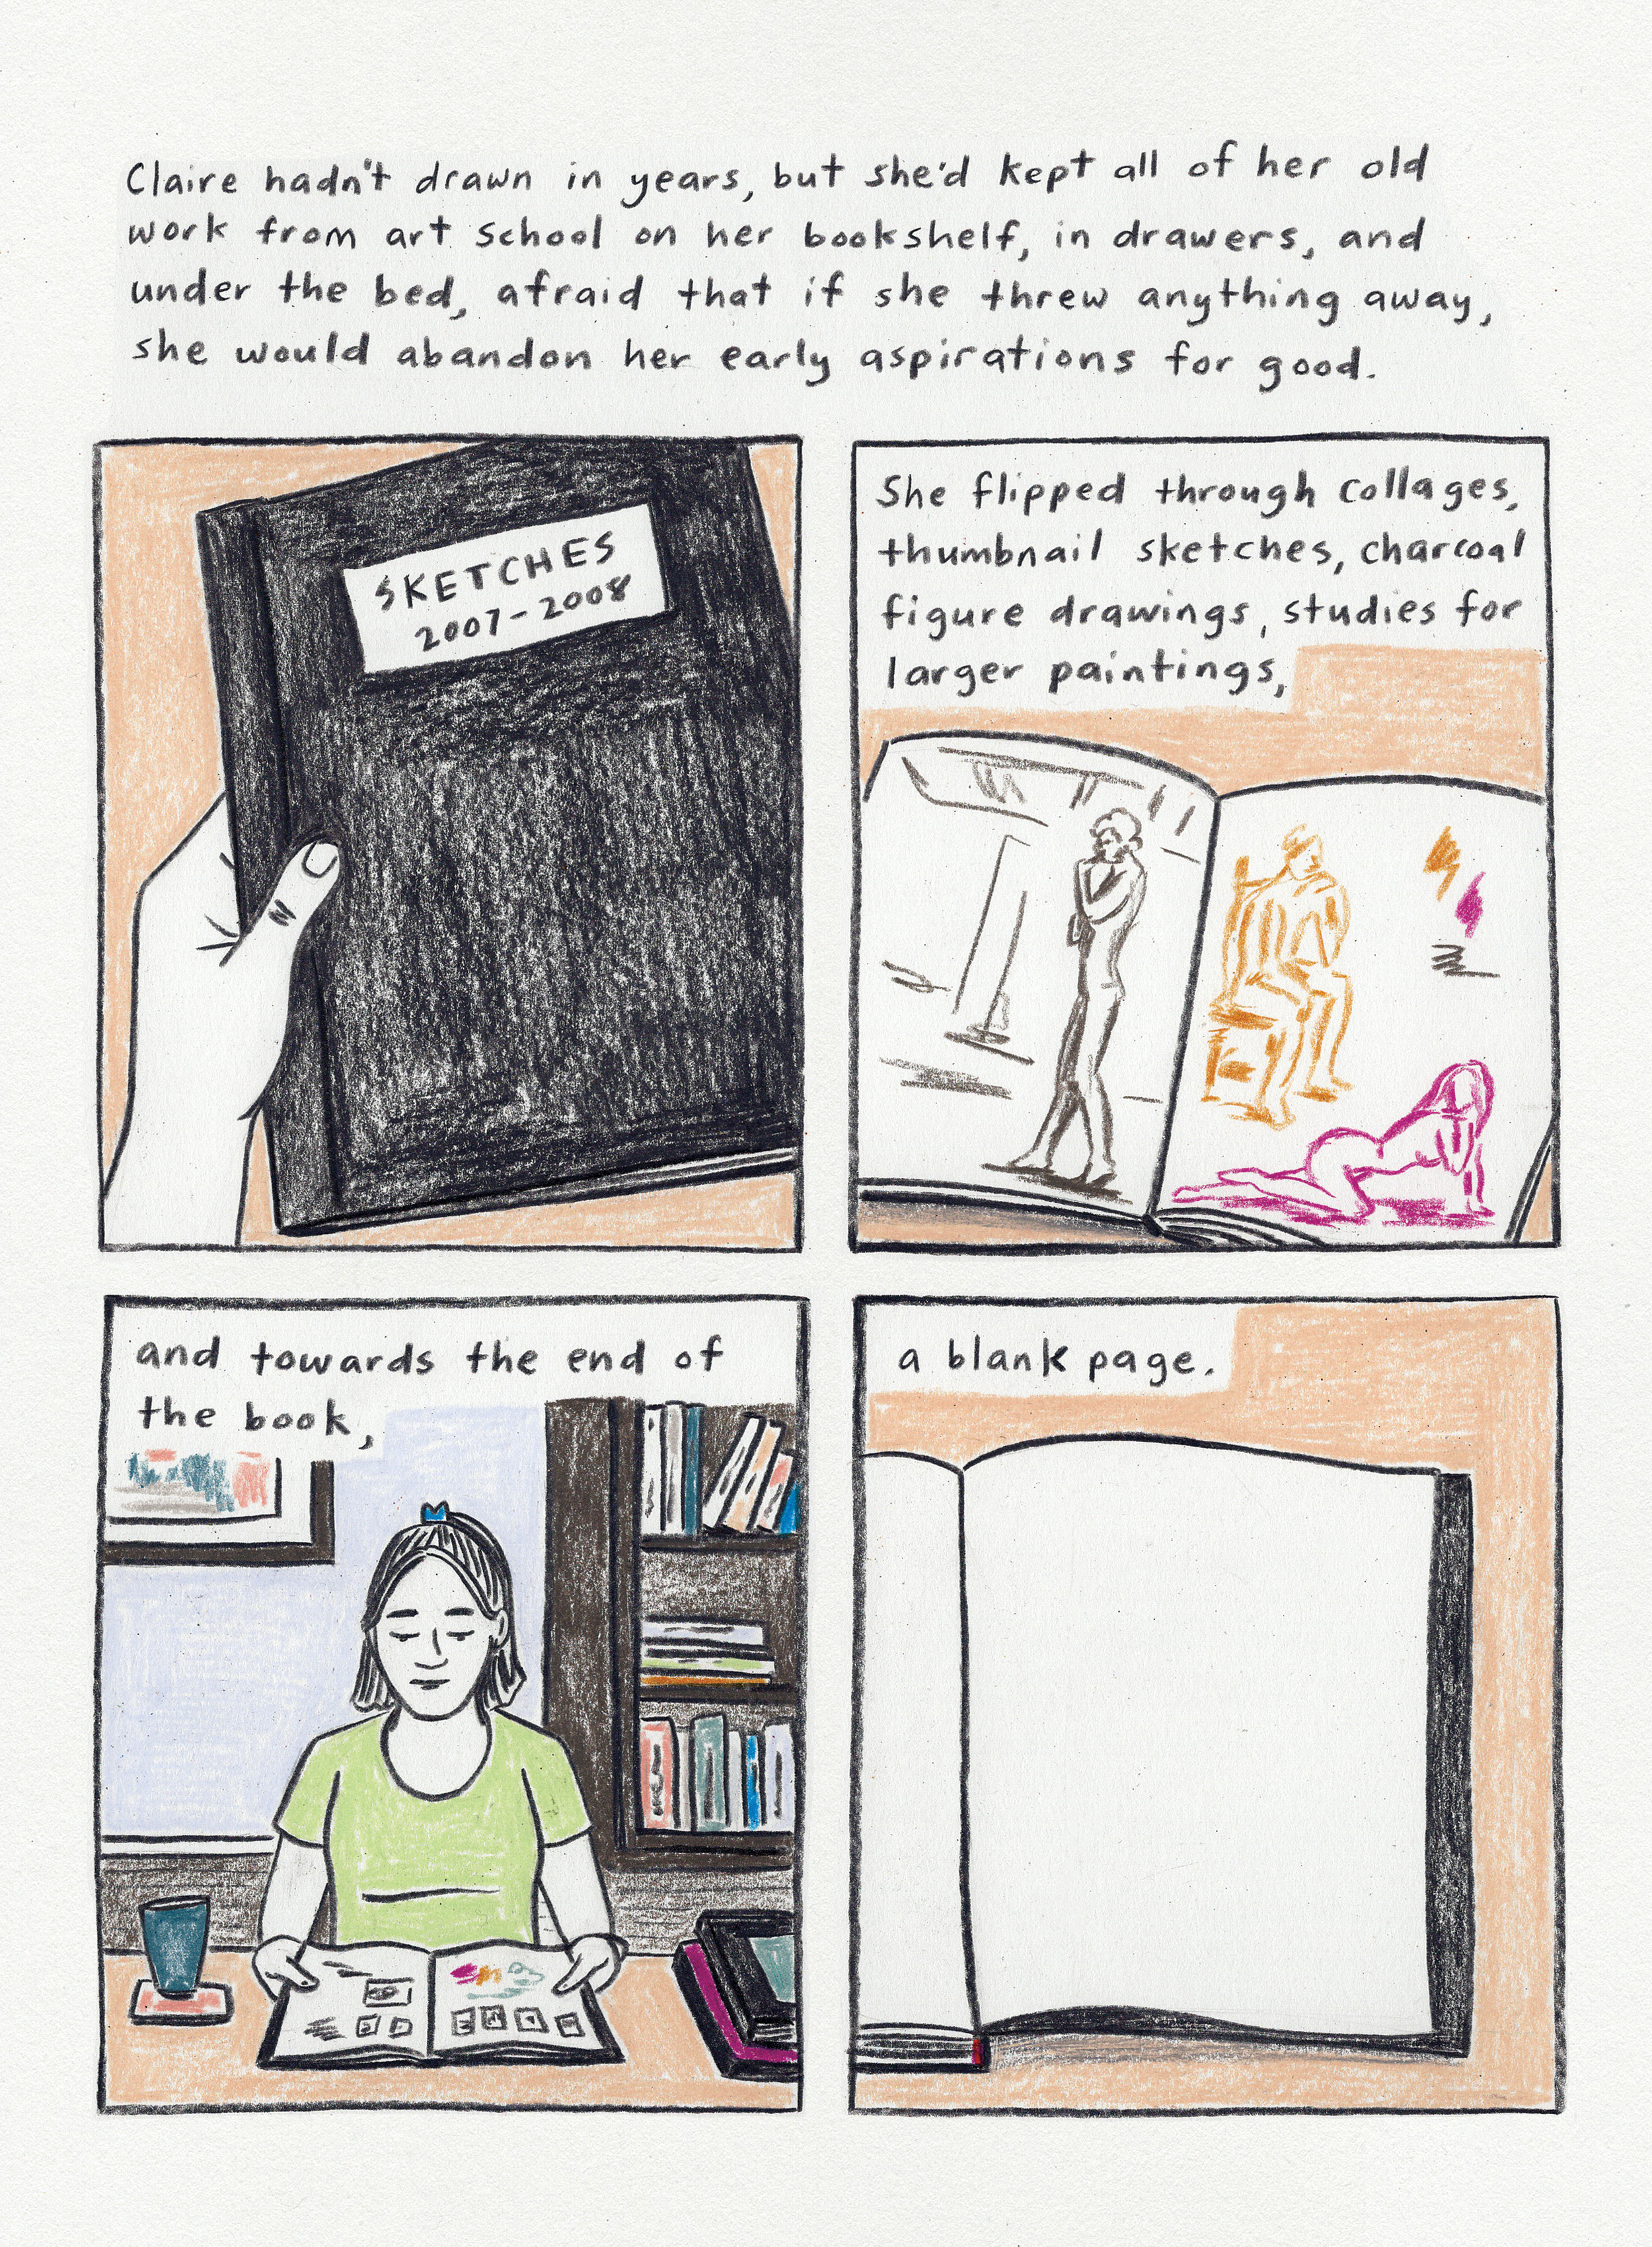 Claire hadn't drawn in years, but she'd kept all of her old
work from art school on her bookshelf, in drawers, and
under the bed, afraid that if she threw anything away,
she would abandon her early aspirations for good.
SKETCHES
2007-2008
She flipped through collages,
thumbnail sketches, charcoal
figure drawings, studies for
larger paintings,
and towards the end of
the book,
a blank page.